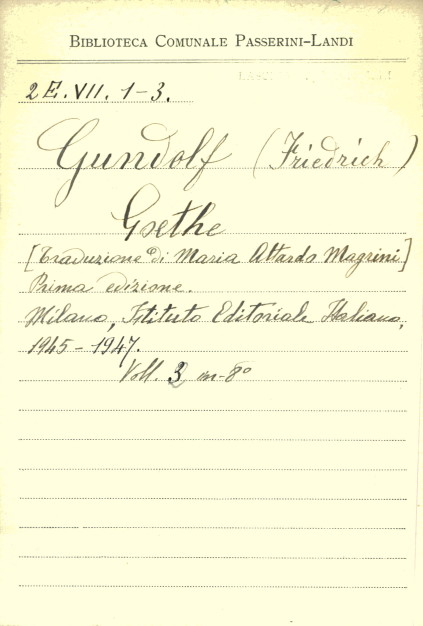 BIBLIOTECA COMUNALE PASSERINI-LANDI
2E. VII. 1-3.
Gundolf (Friedrich)
Goethe
[Traduzione di Maria Attardo Magrini]
Prima edizione.
Milano, Istituto Editoriale Italiano,
1945-1947.
Voll. 3 in-8º